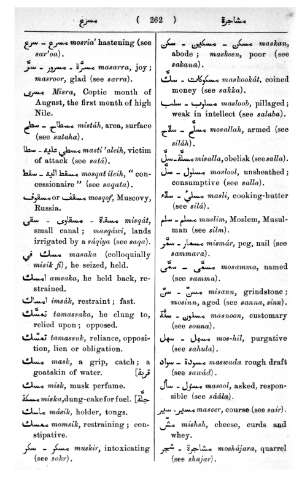 مسرع ( 262 ) مشاجرة
مسرع - سرع mosria' hastening (see
sar'oo).
مسرّة - مسرور - سرّ masarra, joy;
masroor, glad (see sarra).
مسرى Misra, Coptic month of
August, the first month of high
Nile.
مسطاح - سطح mistáh, area, surface
(see sataha).
مسطي عليه - سطا masti 'aleih, victim
of attack (see satá).
مسقط اليه - سقط mosqat ileih, "con-
cessionaire" (see saqata).
مسقوف or مسقوف mosqof, Muscovy,
Russia.
مسقاة - مسقاوى - سقى misqát,
small canal; misqáwi, lands
irrigated by a sáqiya (see saqa).
مسك في masaka (colloquially
misik fi), he seized, held.
امسك amsaka, he held back, re-
strained.
امساك imsák, restraint; fast.
تمسك tamassaka, he clung to,
relied upon; opposed.
تمسك tamassuk, reliance, opposi-
tion, lien or obligation.
مسك mask, a grip, catch; a
goatskin of water. [قربة
مسك misk, musk perfume.
مسكة miska, dung-cake for fuel. [جلّة
ماسك másik, holder, tongs.
ممسك momsik, restraining; con-
stipative.
مسكر - سكر muskir, intoxicating
(see sakr).
مسكن - مسكين - سكن maskan,
abode; maskeen, poor (see
sakana).
مسكوكات - سك maskookát, coined
money (see sakka).
مسلوب - سلب masloob, pillaged;
weak in intellect (see salaba).
مسلّح - سلاح mosallah, armed (see
siláh).
مسلّة - سلّ misalla, obelisk (see salla).
مسلول - سلّ maslool, unsheathed;
consumptive (see salla).
مسلى - سلاء masli, cooking-butter
(see silá).
مسلم - سلم muslim, Moslem, Musul-
man (see silm).
مسمار - سمّر mismár, peg, nail (see
sammara).
مسمّى - سمّى mosamma, named
(see samma).
مسنّ - سنّ misann, grindstone;
mosinn, aged (see sanna, sinn).
مسنون - سنّة masnoon, customary
(see sonna).
مسهل - سهل mos-hil, purgative
(see sahula).
مسودة - سواد maswada rough draft
(see sawád).
مسئول - سأل masool, asked, respon-
sible (see sáála).
مسير - سير maseer, course (see sair).
مش mishsh, cheese, curds and
whey.
مشاجرة - شجر moshájara, quarrel
(see shajar).